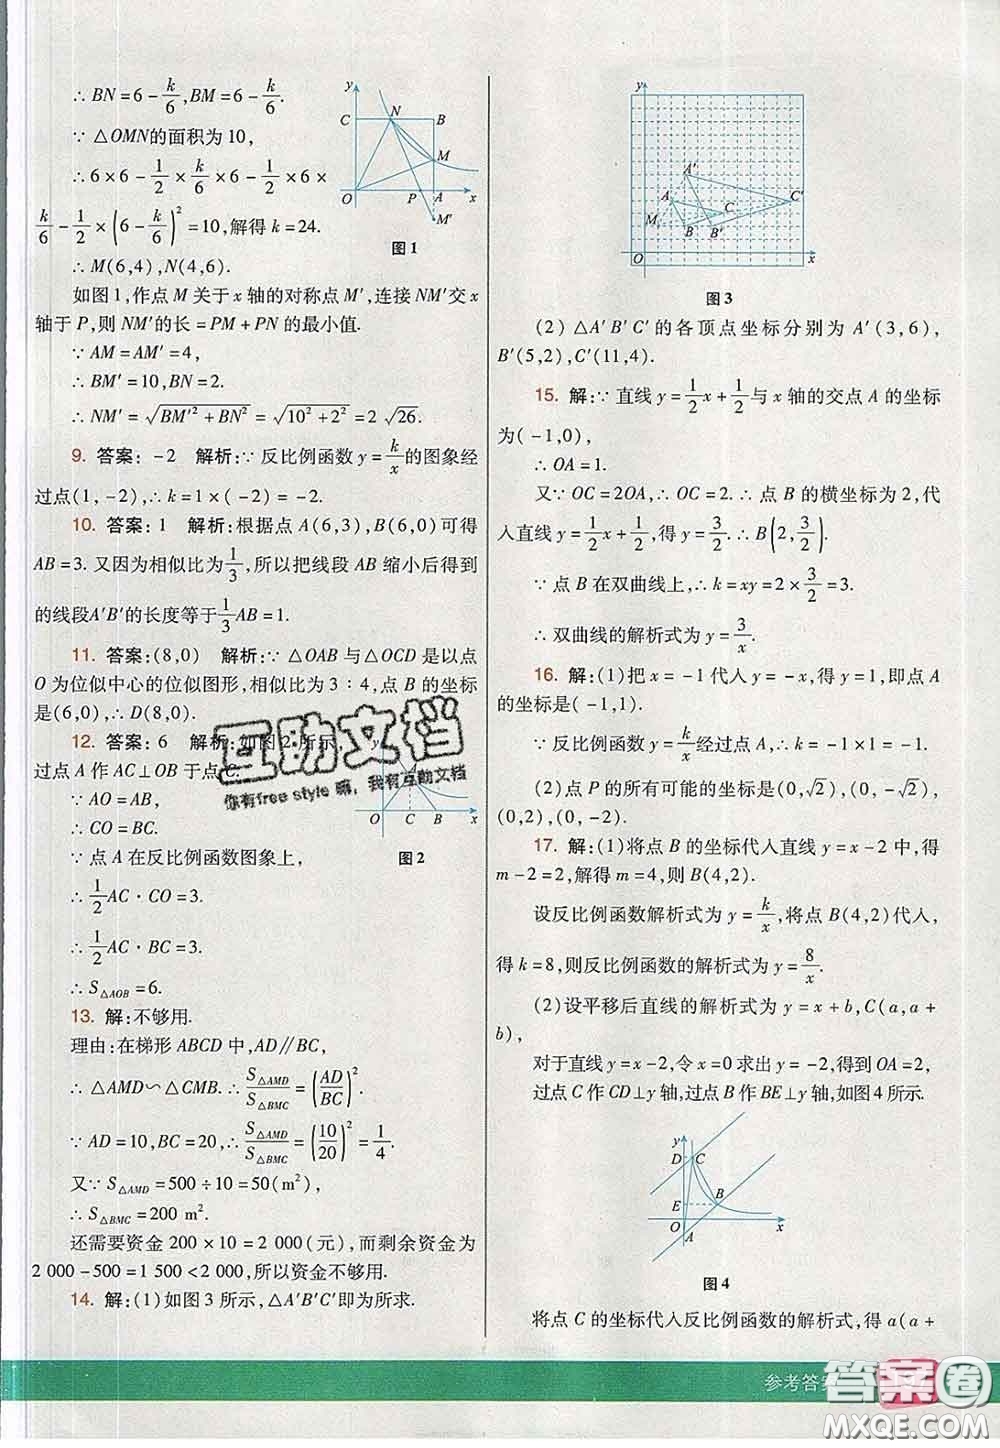 ∴ BN=6-k/6,BM=6-k/6.
∵ △OMN的面积为10,
∴ 6×6-1/2×k/6×6-1/2×6×
k/6-1/2×(6-k/6)²=10,解得k=24.
∴ M(6,4),N(4,6).
如图1,作点M关于x轴的对称点M′,连接NM′交x
轴于P,则NM′的长=PM+PN的最小值.
∵ AM=AM′=4,
∴ BM′=10,BN=2.
∴ NM′=√(BM′²+BN²)=√(10²+2²)=2√26.
y
C
N
B
M
O
P
A
x
M′
图1
9. 答案:-2 解析:∵ 反比例函数y=k/x的图象经
过点(1,-2),∴ k=1×(-2)=-2.
10. 答案:1 解析:根据点A(6,3),B(6,0)可得
AB=3.又因为相似比为1/3,所以把线段AB缩小后得到
的线段A′B′的长度等于1/3AB=1.
11. 答案:(8,0) 解析:∵ △OAB与△OCD是以点
O为位似中心的位似图形,相似比为3∶4,点B的坐标
是(6,0),∴ D(8,0).
12. 答案:6 解析:如图2所示,
过点A作AC⊥OB于点C.
∵ AO=AB,
∴ CO=BC.
∵ 点A在反比例函数图象上,
∴ 1/2AC·CO=3.
∴ 1/2AC·BC=3.
∴ S△AOB=6.
y
O
C
B
x
图2
13. 解:不够用.
理由:在梯形ABCD中,AD∥BC,
∴ △AMD∽△CMB.∴ S△AMD/S△BMC=(AD/BC)².
∵ AD=10,BC=20,∴ S△AMD/S△BMC=(10/20)²=1/4.
又∵ S△AMD=500÷10=50(m²),
∴ S△BMC=200 m².
还需要资金200×10=2 000(元),而剩余资金为
2 000-500=1 500<2 000,所以资金不够用.
14. 解:(1)如图3所示,△A′B′C′即为所求.
y
A′
A
C′
C
M
B
B′
O
x
图3
(2)△A′B′C′的各顶点坐标分别为A′(3,6),
B′(5,2),C′(11,4).
15. 解:∵ 直线y=1/2x+1/2与x轴的交点A的坐标
为(-1,0),
∴ OA=1.
又∵ OC=2OA,∴ OC=2.∴ 点B的横坐标为2,代
入直线y=1/2x+1/2,得y=3/2.∴ B(2,3/2).
∵ 点B在双曲线上,∴ k=xy=2×3/2=3.
∴ 双曲线的解析式为y=3/x.
16. 解:(1)把x=-1代入y=x²,得y=1,即点A
的坐标为(-1,1).
∵ 反比例函数y=k/x经过点A,∴ k=-1×1=-1.
(2)点P的所有可能的坐标是(0,√2),(0,-√2),
(0,2),(0,-2).
17. 解:(1)将点B的坐标代入直线y=x-2中,得
m-2=2,解得m=4,则B(4,2).
设反比例函数解析式为y=k/x,将点B(4,2)代入,
得k=8,则反比例函数的解析式为y=8/x.
(2)设平移后直线的解析式为y=x+b,C(a,a+
b),
对于直线y=x-2,令x=0求出y=-2,得到OA=2,
过点C作CD⊥y轴,过点B作BE⊥y轴,如图4所示.
y
D
C
E
B
O
x
A
图4
将点C的坐标代入反比例函数的解析式,得a(a+
互助文档
你有free style嘛,我有互助文档
参考答案
答案圈
MXQE.COM